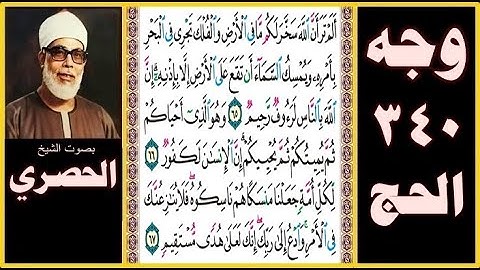 وجه
٣٤٠
الحج
أَلَمْ تَرَ أَنَّ ٱللَّهَ سَخَّرَ لَكُم مَّا فِى ٱلْأَرْضِ وَٱلْفُلْكَ تَجْرِى فِى ٱلْبَحْرِ
بِأَمْرِهِۦ وَيُمْسِكُ ٱلسَّمَآءَ أَن تَقَعَ عَلَى ٱلْأَرْضِ إِلَّا بِإِذْنِهِۦٓ إِنَّ
ٱللَّهَ بِٱلنَّاسِ لَرَءُوفٌ رَّحِيمٌ ٦٥ وَهُوَ ٱلَّذِىٓ أَحْيَاكُمْ
ثُمَّ يُمِيتُكُمْ ثُمَّ يُحْيِيكُمْ إِنَّ ٱلْإِنسَٰنَ لَكَفُورٌ ٦٦
لِّكُلِّ أُمَّةٍ جَعَلْنَا مَنسَكًا هُمْ نَاسِكُوهُ فَلَا يُنَٰزِعُنَّكَ
فِى ٱلْأَمْرِ وَٱدْعُ إِلَىٰ رَبِّكَ إِنَّكَ لَعَلَىٰ هُدًى مُّسْتَقِيمٍ ٦٧
بصوت الشيخ
الحصري